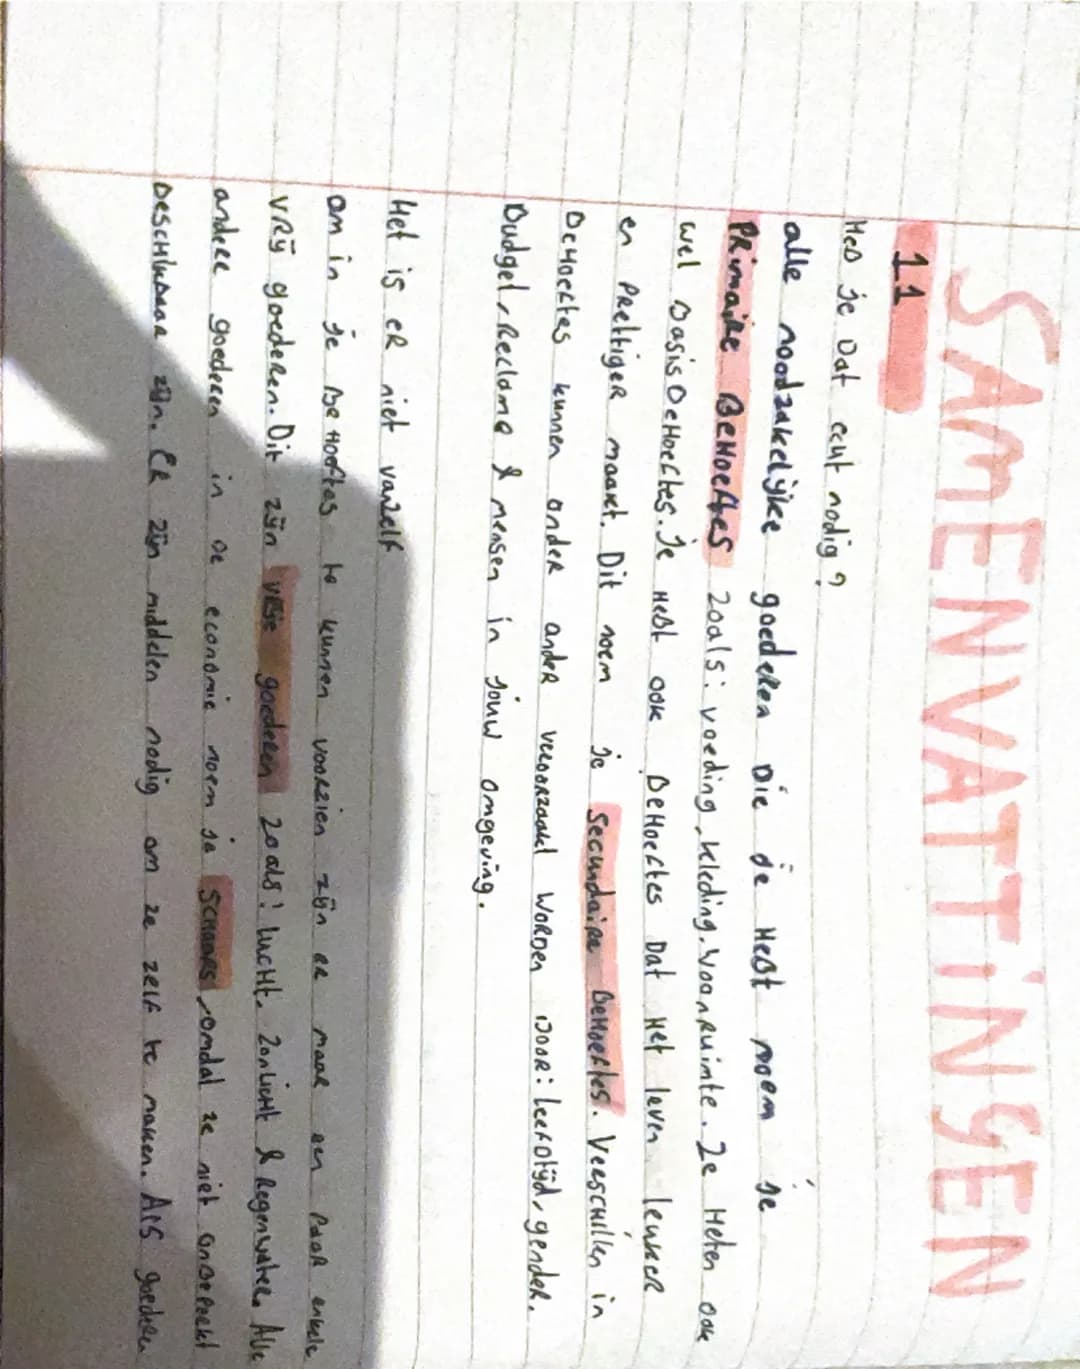 SAMENVATTINGEN
1.1
Heb je dat echt nodig?
alle noodzakelijke goederen die je hebt noem je
Primaire Behoeftes zoals: voeding, kleding. Woonruimte. Ze heten ook
wel basisbehoeftes. Je hebt ook behoeftes dat het leven leuker
en prettiger maakt. Dit noem je Secundaire behoeftes. Verschillen in
behoeftes kunnen onder ander veroorzaakt worden door: leeftijd, gender.
Budget, Reclame & mensen in jouw omgeving.
Het is er niet vanzelf
om in je behoeftes te kunnen voorzien zijn er maar een paar enkele
vrij goederen. Dit zijn vrije goederen zoals: lucht. Zonlicht & Regenwater. Alle
andere goederen in de economie noem je Schaars, omdat ze niet onbeperkt
beschikbaar zijn. Er zijn middelen nodig om ze zelf te maken. Als goederen